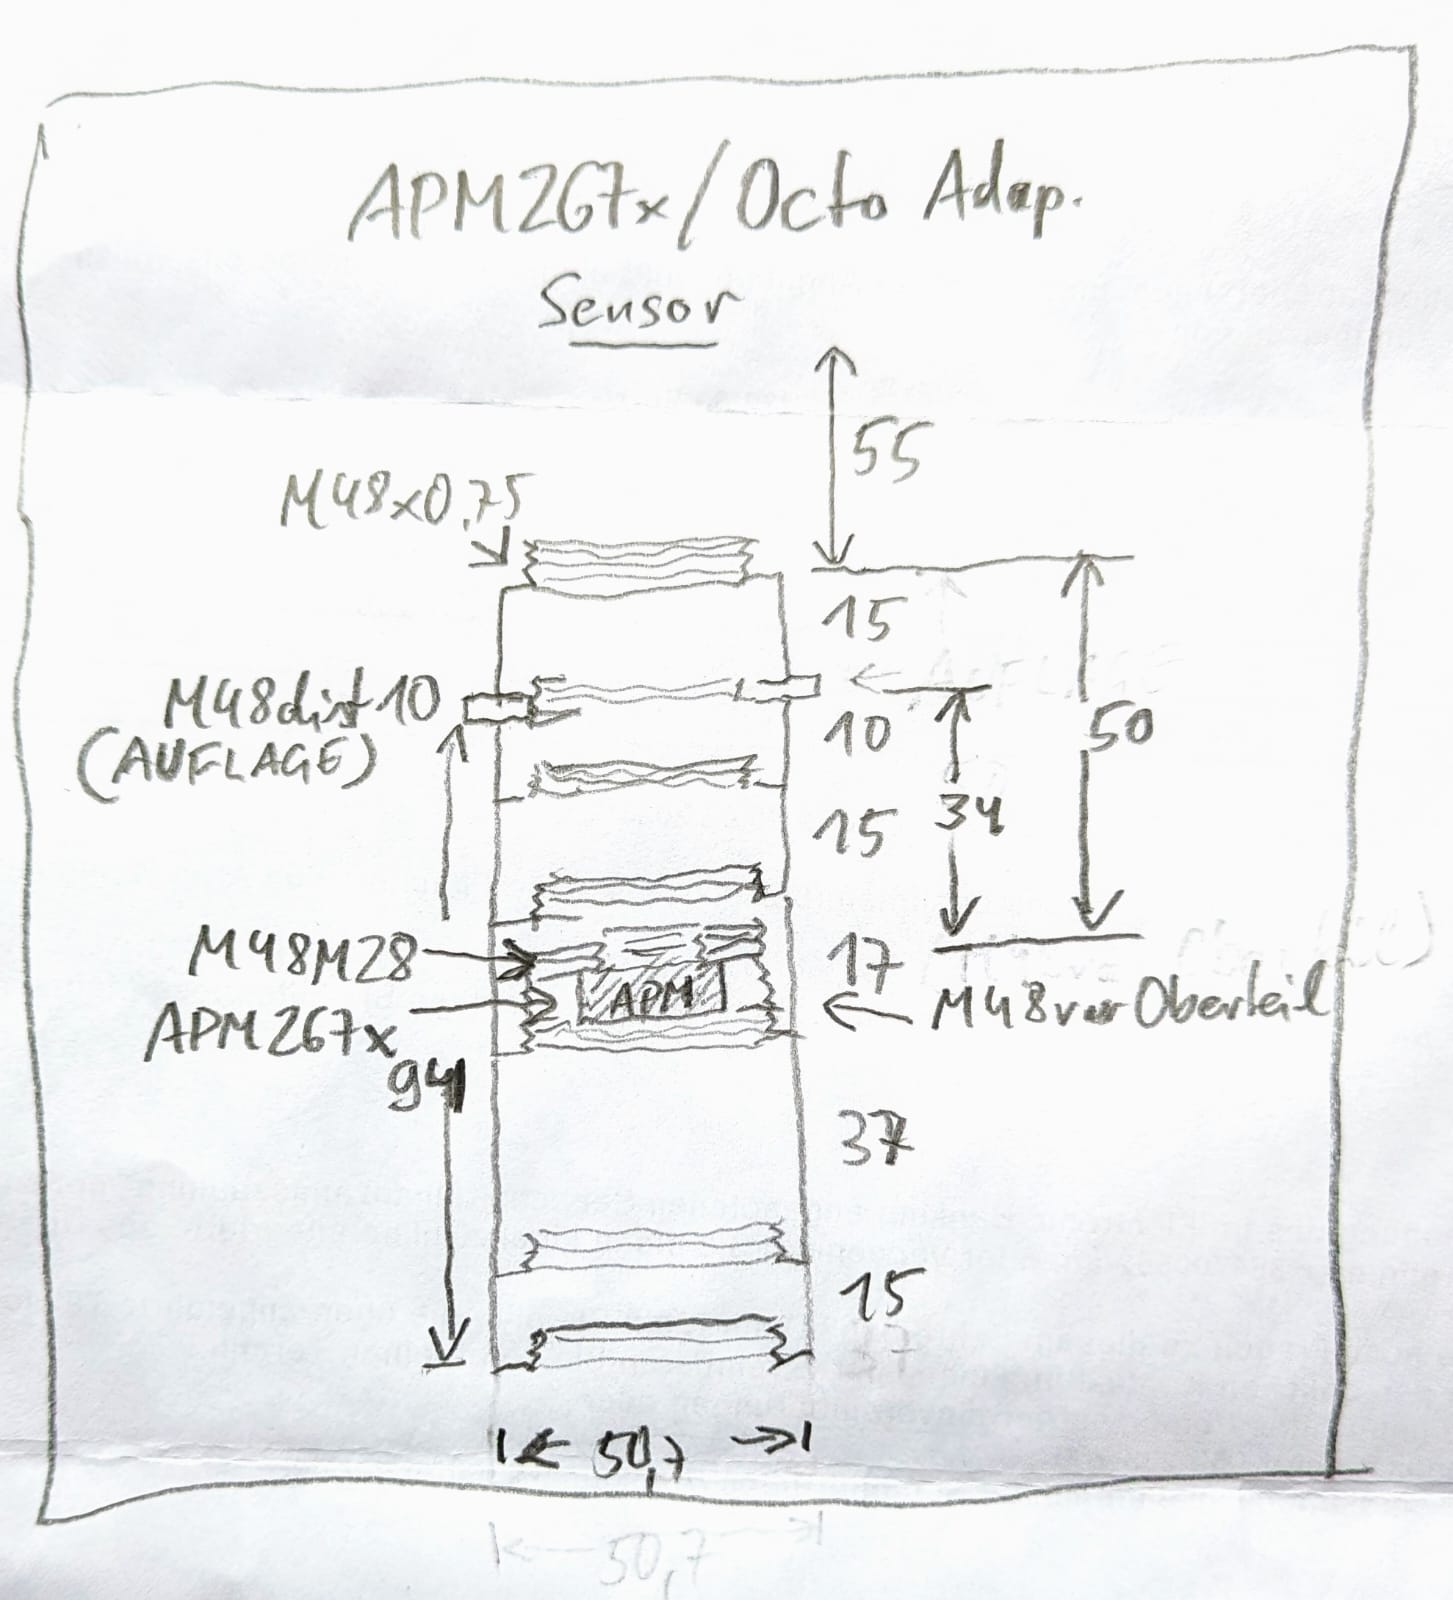 APM267x/Octo Adap.
Sensor
55
M48x0,75
15
M48dist10
(AUFLAGE)
10
50
34
15
M48M28
17
APM
M48var Oberteil
APM267x
94
37
15
37
50,7
50,7